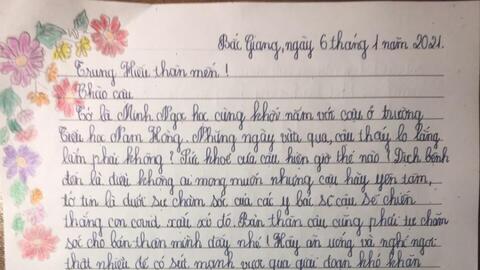 Bắc Giang, ngày 6 tháng 1 năm 2021.
Trung Hiếu thân mến !
Chào cậu
Tớ là Minh Ngọc học cùng khối năm với cậu ở trường
Tiểu học Nam Hồng. Những ngày vừa qua, cậu thấy lo lắng
lắm phải không ? Sức khoẻ của cậu hiện giờ thế nào ? Dịch bệnh
đến là điều không ai mong muốn nhưng cậu hãy yên tâm,
tớ tin là dưới sự chăm sóc của các y bác sĩ cậu sẽ chiến
thắng con covid xấu xí đó. Bản thân cậu cũng phải tự chăm
sóc cho bản thân mình đấy nhé ! Hãy ăn uống và nghỉ ngơi
thật nhiều để có sức mạnh vượt qua giai đoạn khó khăn